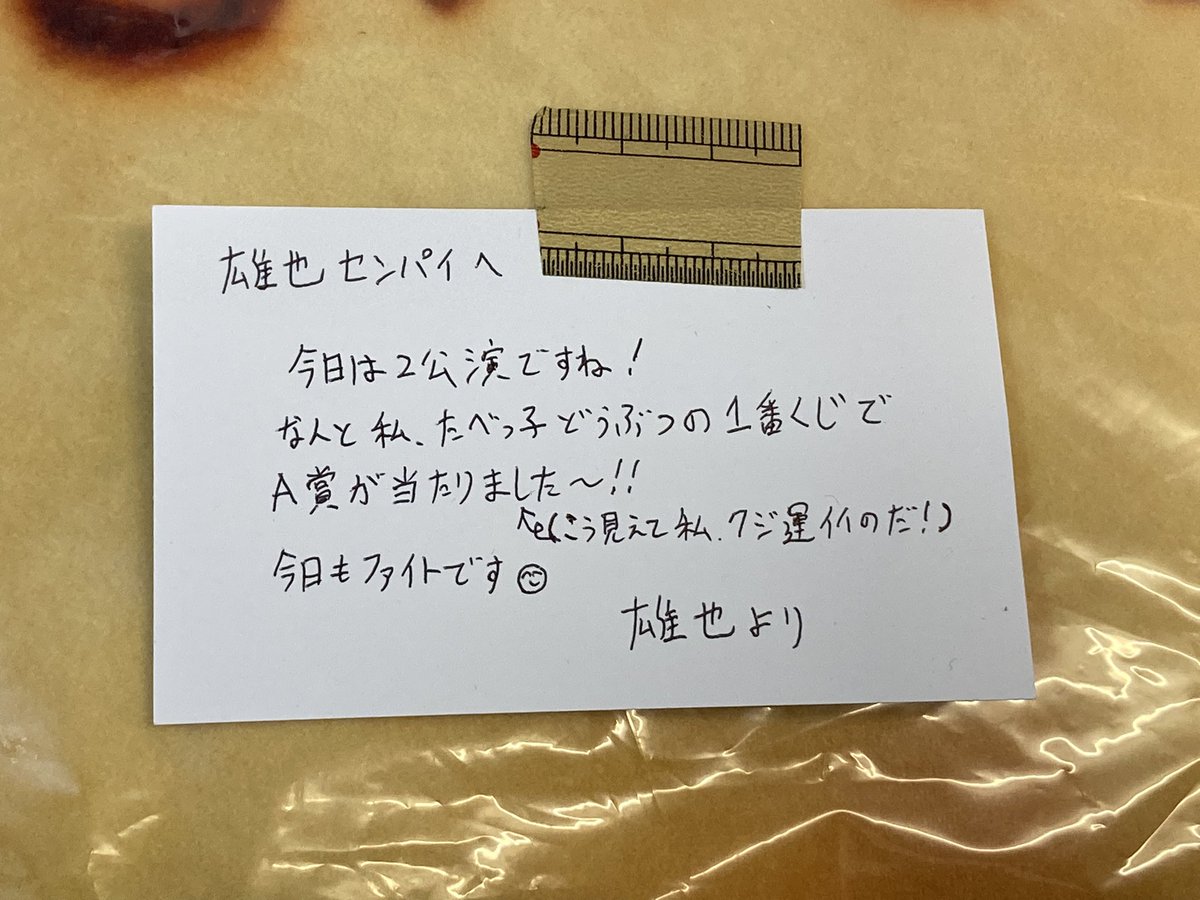 雄也センパイへ
今日は2公演ですね!
なんと私、たべっ子どうぶつの1番くじで
A賞が当たりました〜!!
(こう見えて私、クジ運イイのだ!)
今日もファイトです
雄也より